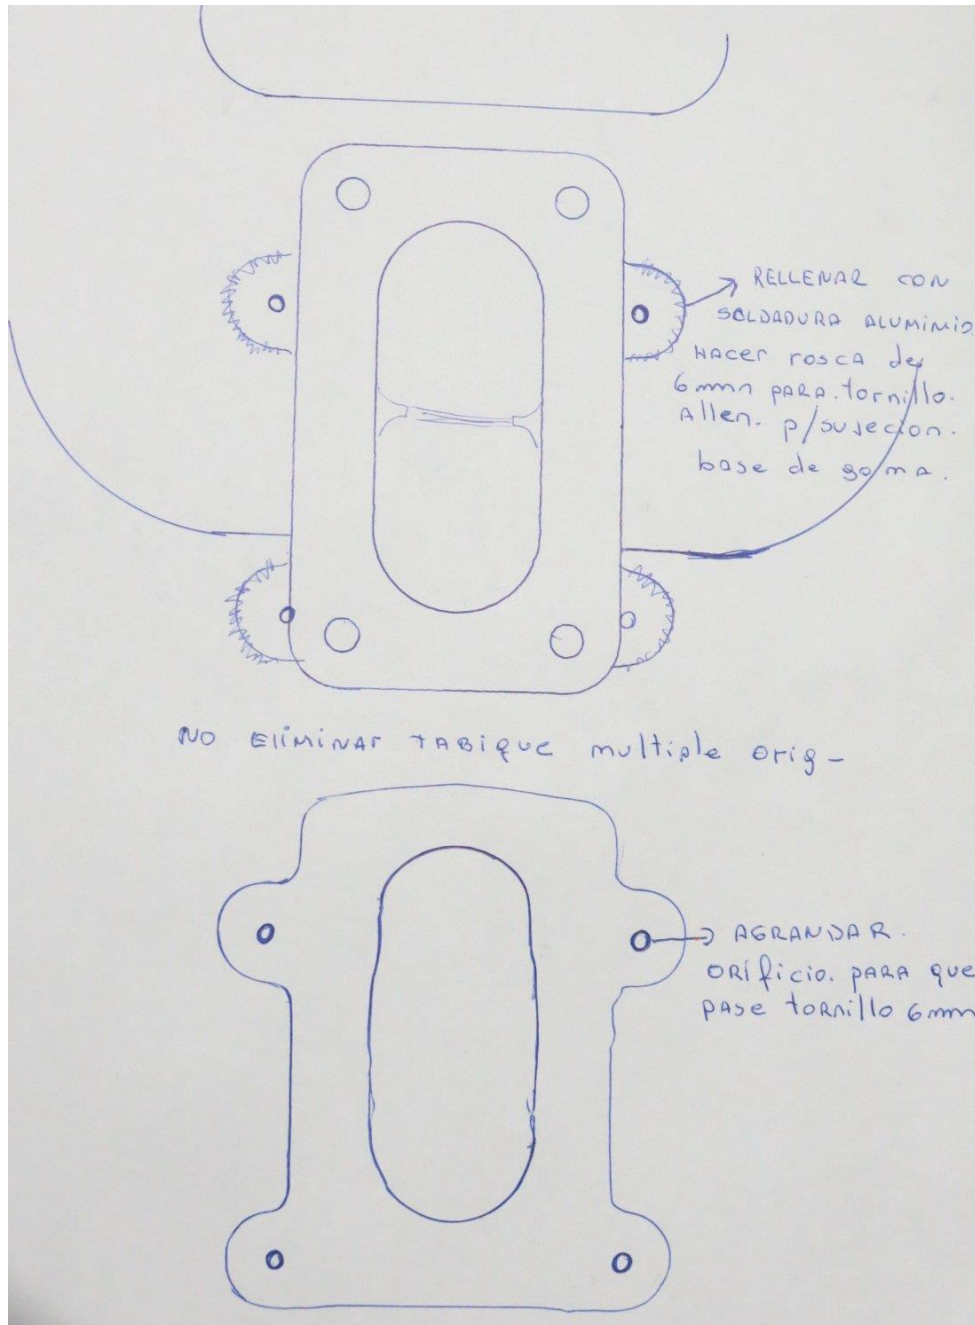 RELLENAR CON
SOLDADURA ALUMINIO
HACER rosca de
6mm PARA. tornillo.
Allen. p/sujecion.
base de goma.
NO EliMiNAr TABiQUE multiple orig-
AGRANDAR.
ORificio. PARA que
PASE tORNillo 6mm